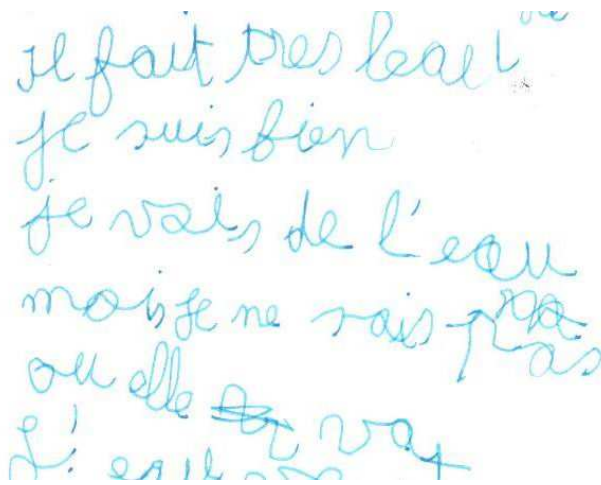 Il fait tres beau
je suis bien
je vais de l'eau
mais je ne sais pas
ou elle va
L'eau